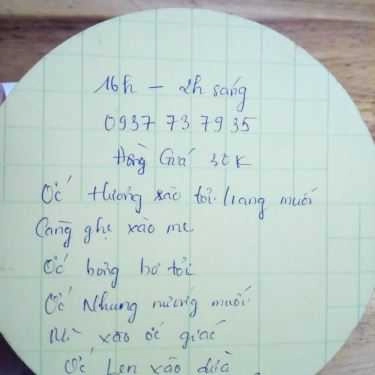 16h - 2h sáng
0937 73 7935
Đồng Giá 30K
Ốc Hương xào tỏi. rang muối
Càng ghẹ xào me
Ốc bông bơ tỏi
Ốc Nhung nướng muối
Mì xào ốc giác
Ốc Len xào dừa